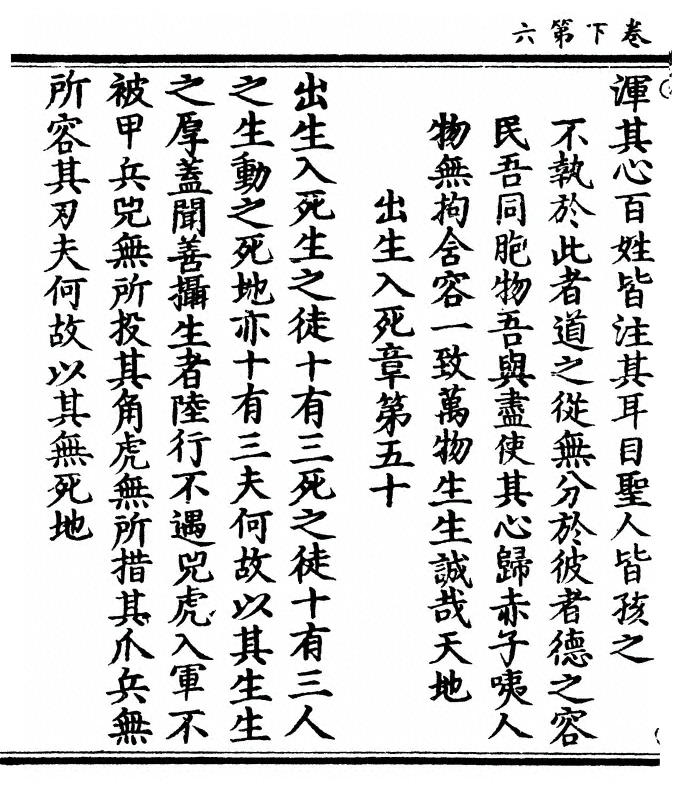 卷下第六
渾其心百姓皆注其耳目聖人皆孩之
不執於此者道之從無分於彼者德之容
民吾同胞物吾與盡使其心歸赤子咦人
物無拘舍容一致萬物生生誠哉天地
出生入死章第五十
出生入死生之徒十有三死之徒十有三人
之生動之死地亦十有三夫何故以其生生
之厚蓋聞善攝生者陸行不遇兕虎入軍不
被甲兵兕無所投其角虎無所措其爪兵無
所容其刃夫何故以其無死地